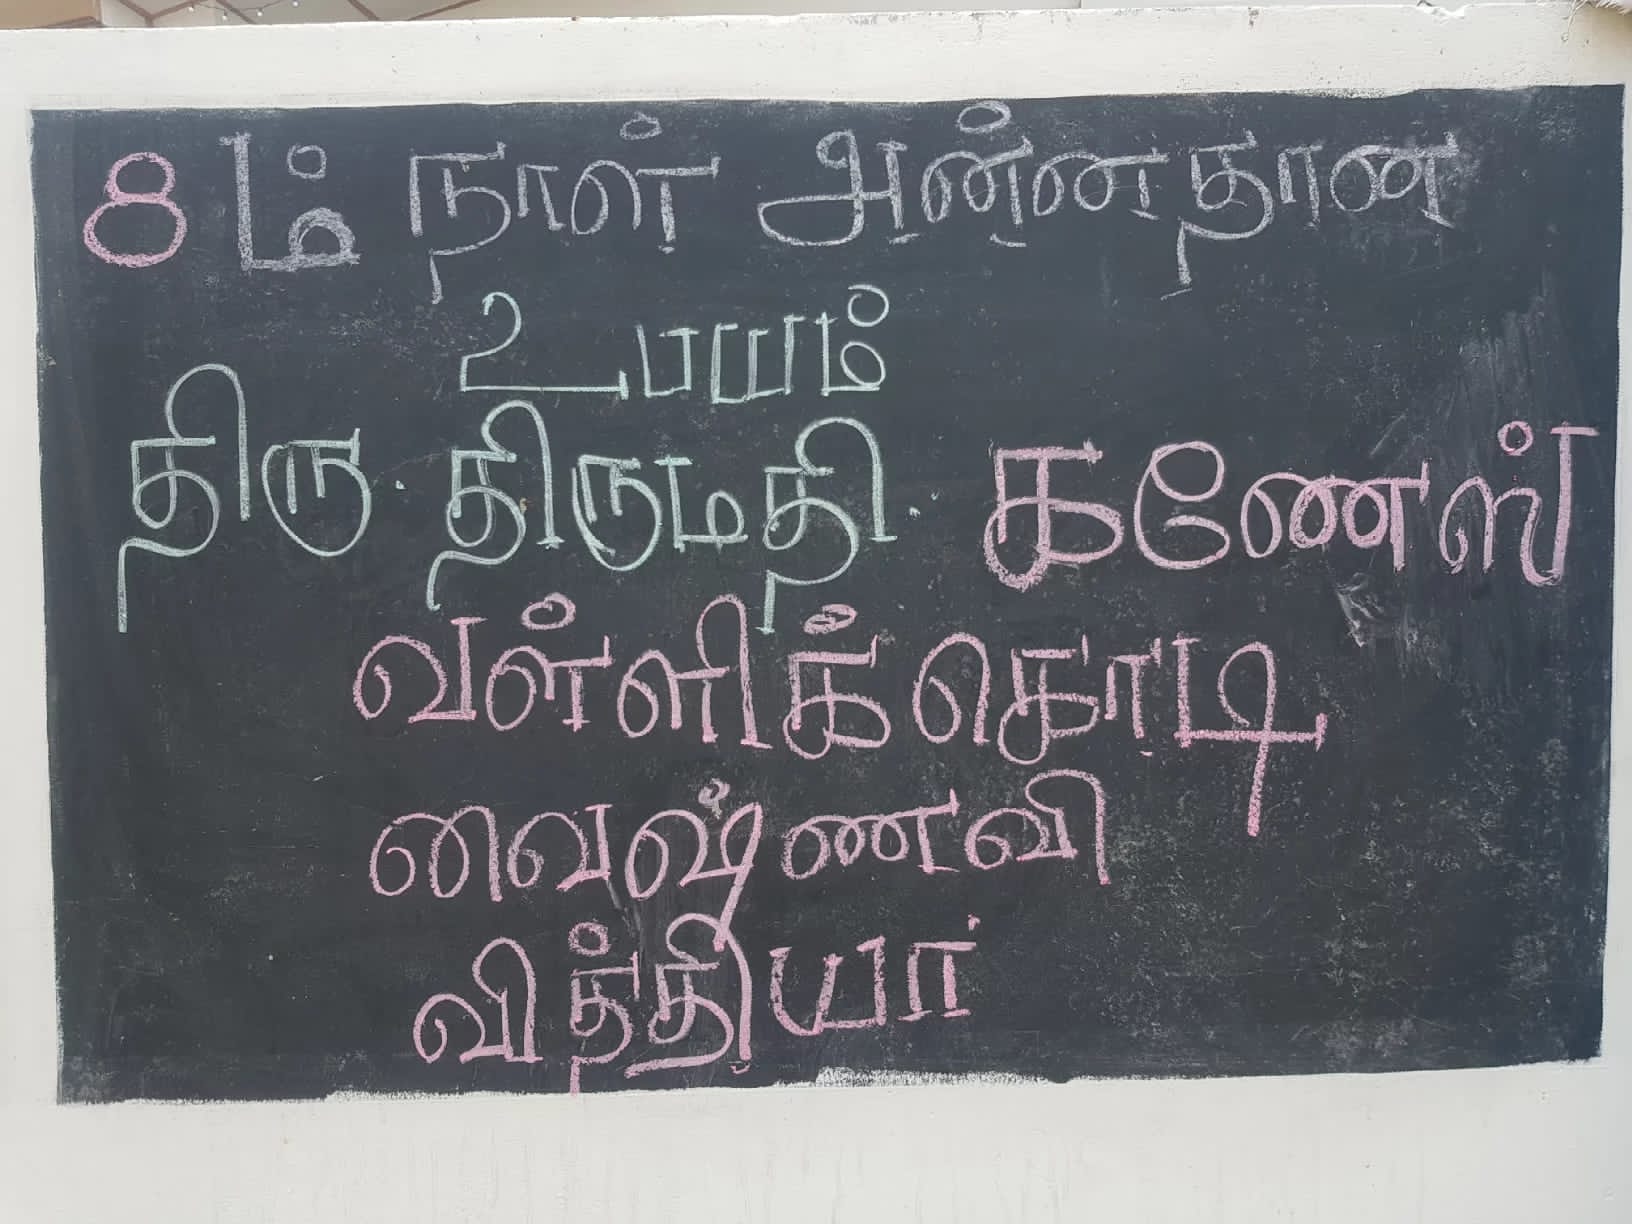 8ம் நாள் அன்னதான
உபயம்
திரு. திருமதி. கணேஸ்
வள்ளிக்கொடி
வைஷ்ணவி
வித்தியா